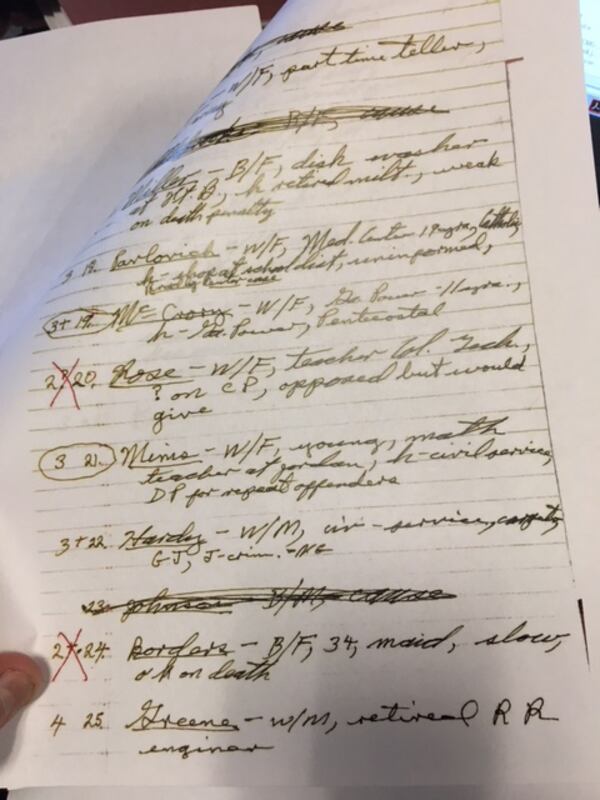 cause
W/F, part time teller,
B/F, cause
B/F, dish washer
at Ft. B., h retired milt., weak
on death penalty
3 18. Pavlovich - W/F, Med. Center 19 yrs, Catholic
h- shop at school dist, uninformed,
3+ 19. McCrory - W/F, Ga. Power - 11 yrs.,
h- Ga. Power, Pentecostal
2? 20. Rose - W/F, teacher Col. Tech.,
? on CP, opposed but would
give
3 21. Mims - W/F, young, math
teacher at Jordan, h- civil service,
DP for repeat offenders
3+ 22. Hardy - W/M, civ-service,
GJ, J-crim. - NG
23. Johnson - B/M, cause
2+ 24. Borders - B/F, 34, maid, slow,
ok on death
4 25. Greene - W/M, retired R R
enginer